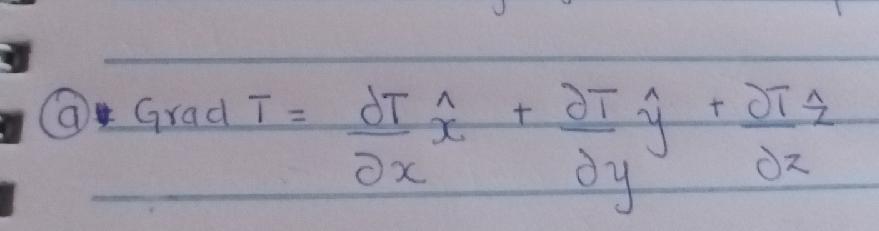 ⓐ Grad T = ∂T/∂x x̂ + ∂T/∂y ŷ + ∂T/∂z ẑ